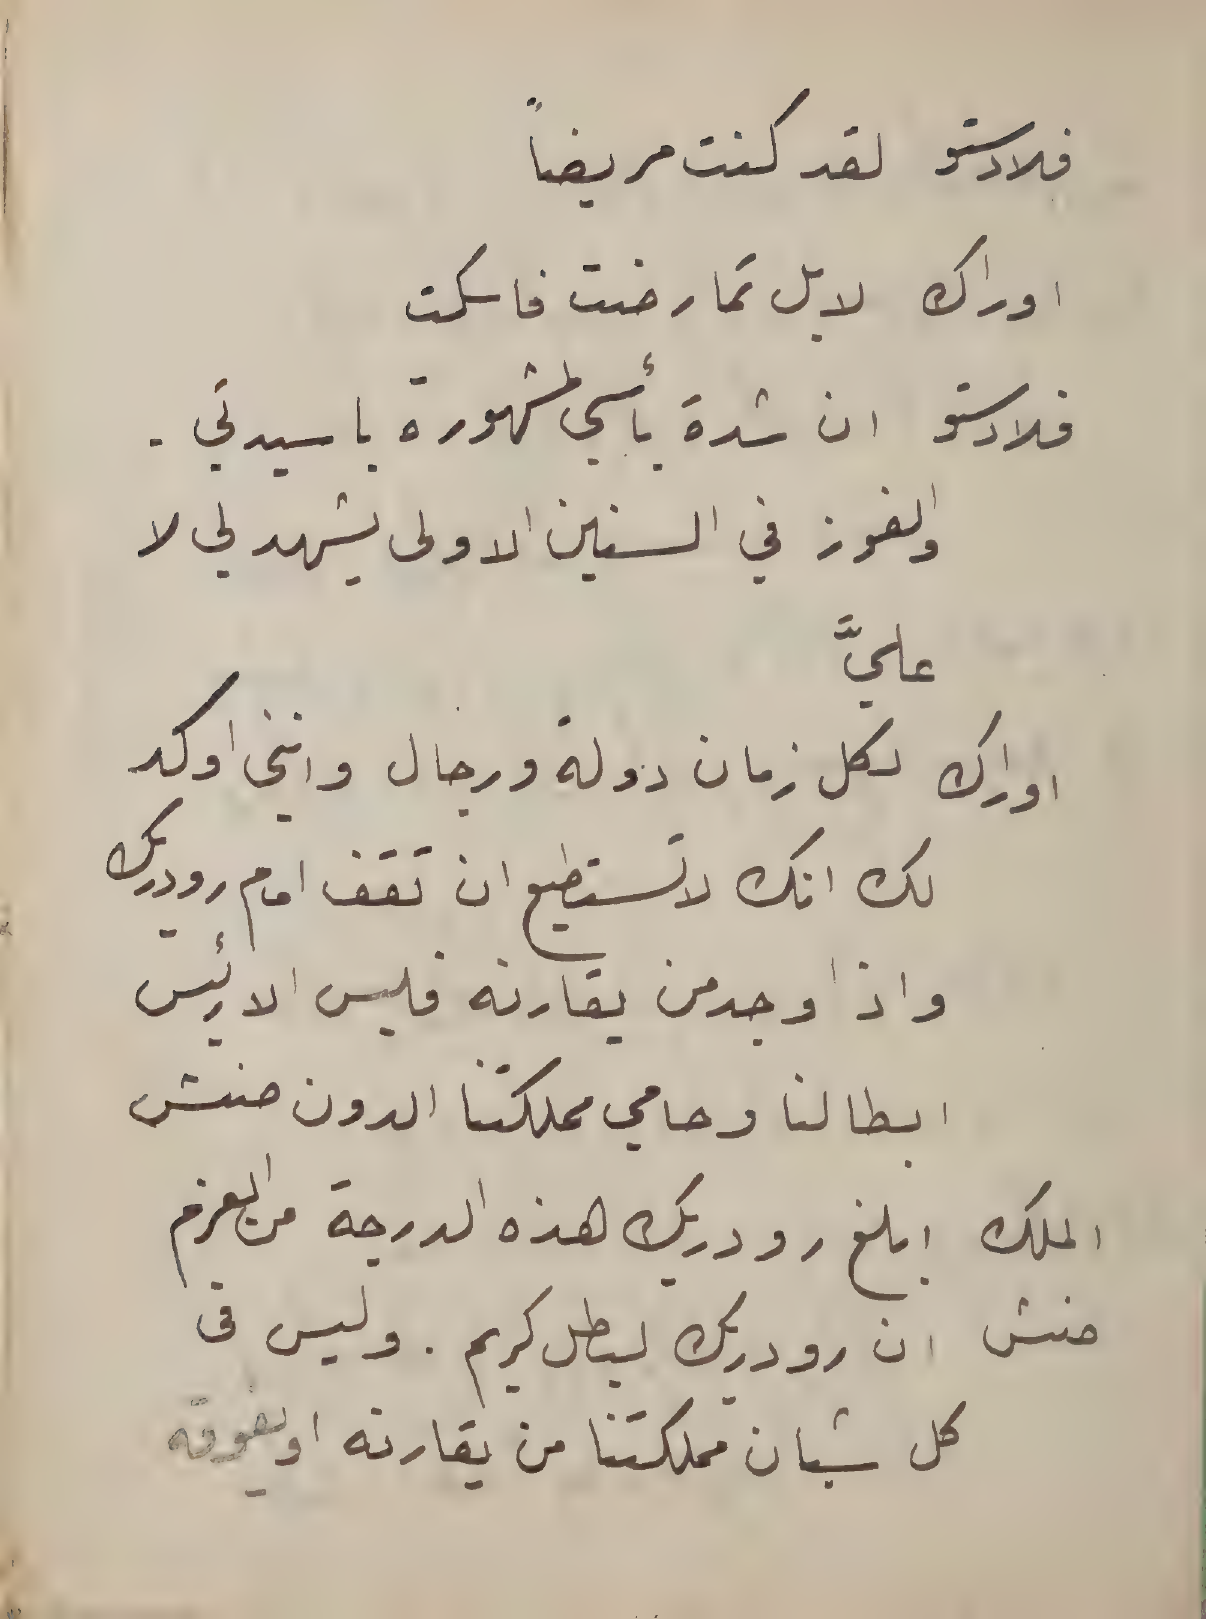 فلادستو لقد كنت مريضاً
اوراك لا بل تمارضت فاسكت
فلادستو ان شدة بأسي لمشهورة يا سيدتي .
والفوز في السنين الاولى يشهد لي لا
عليَّ
اوراك لكل زمان دولة ورجال وانني اوكد
لك انك لا تستطيع ان تقف امام رودريك
واذا وجد من يقارنه فليس الا رئيس
ابطالنا وحامي مملكتنا الدون صنش
الملك ابلغ رودريك هذه الدرجة من العزم
صنش ان رودريك لبطل كريم . وليس في
كل شبان مملكتنا من يقارنه او يفوقه